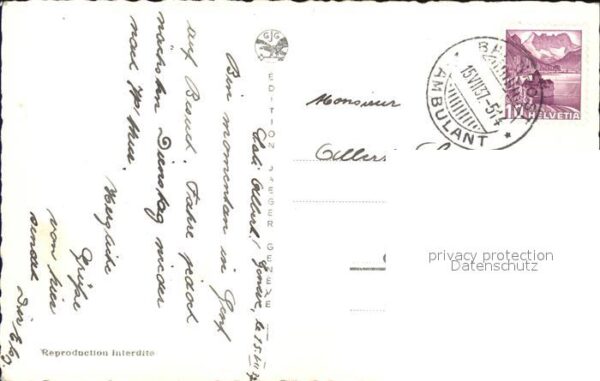 Genève, le 15.VII.37
Lieb Albert!
Bin momentan in Genf
auf Besuch. Fahre jedoch
nächsten Dienstag wieder
nach
Herzliche
Grüße
von hier
sendet
Dir
EDITION JAEGER GENEVE
Reproduction interdite
Monsieur
15.VII.37-514
AMBULANT
10 HELVETIA
privacy protection
Datenschutz